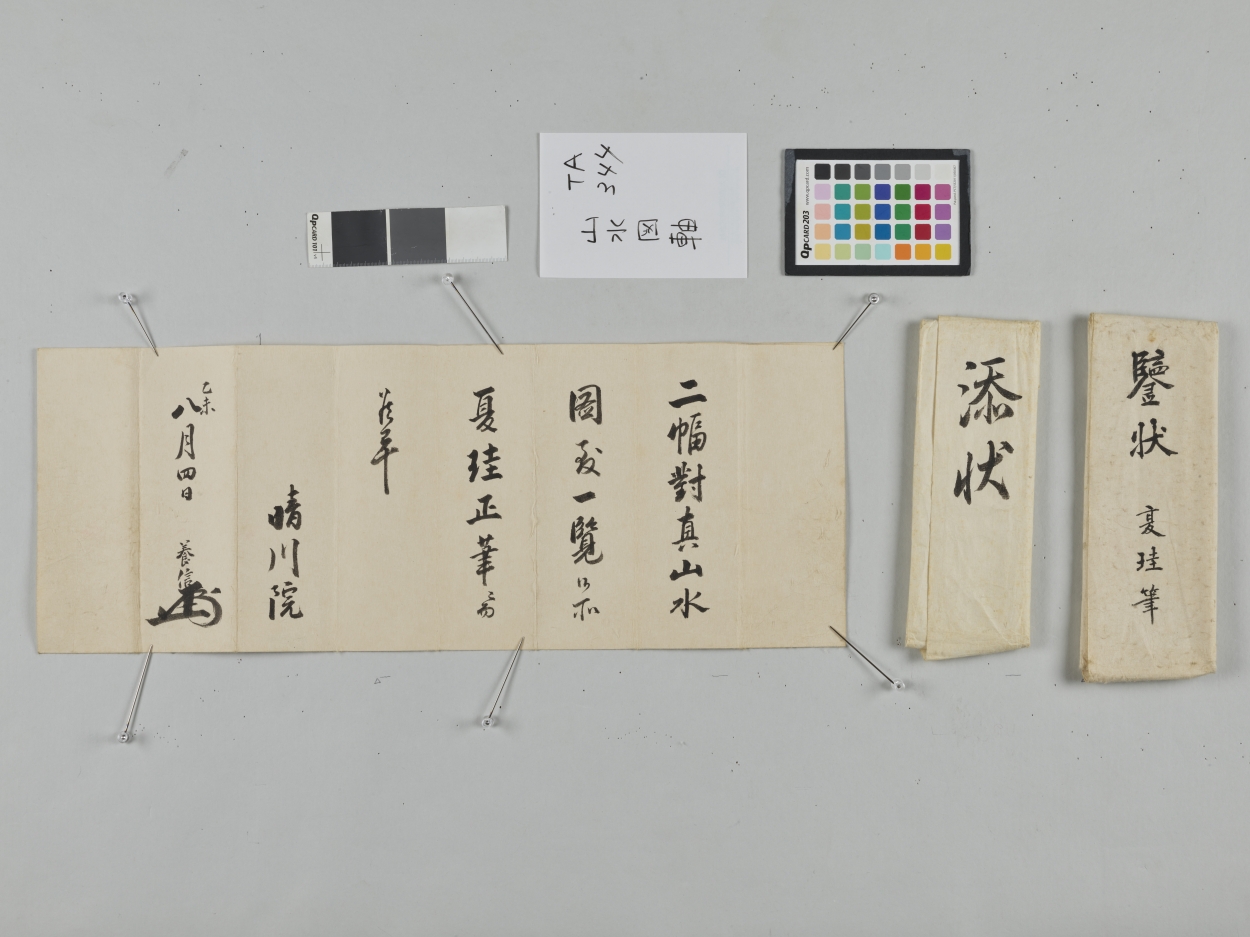 TA
344
山水図軸
QPCARD 101
QPCARD 203
www.qpcard.com
二幅對真山水
圖致一覧候所
夏珪正筆ニ而
晴川院
乙未
八月四日 養信
添状
鑒状 夏珪筆